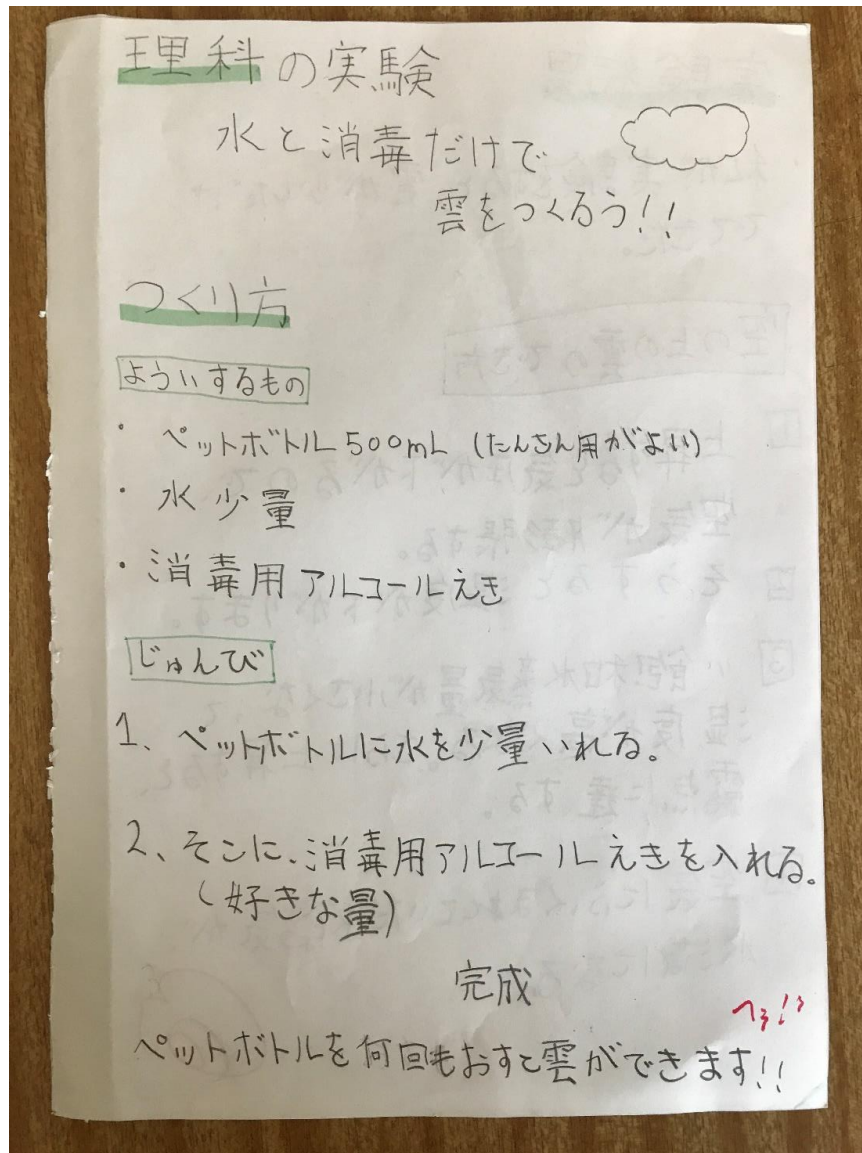 理科の実験
水と消毒だけで
雲をつくろう!!
つくり方
よういするもの
・ ペットボトル500mL (たんさん用がよい)
・ 水少量
・ 消毒用アルコールえき
じゅんび
1、ペットボトルに水を少量いれる。
2、そこに、消毒用アルコールえきを入れる。
(好きな量)
完成
へぇ!!
ペットボトルを何回もおすと雲ができます!!